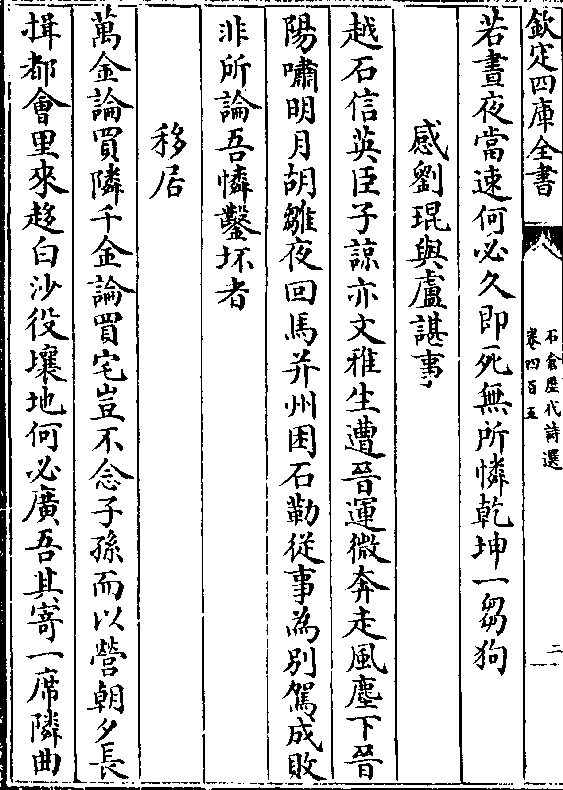 欽定四庫全書
石倉歷代詩選
卷四百五
二
若晝夜當速何必久即死無所憐乾坤一芻狗
感劉琨與盧諶事
越石信英臣子諒亦文雅生遭晉運微奔走風塵下晉
陽嘯明月胡雛夜回馬并州困石勒從事為別駕成敗
非所論吾憐鑿坏者
移居
萬金論買隣千金論買宅豈不念子孫而以營朝夕長
揖都會里來趍白沙役壤地何必廣吾其寄一席隣曲